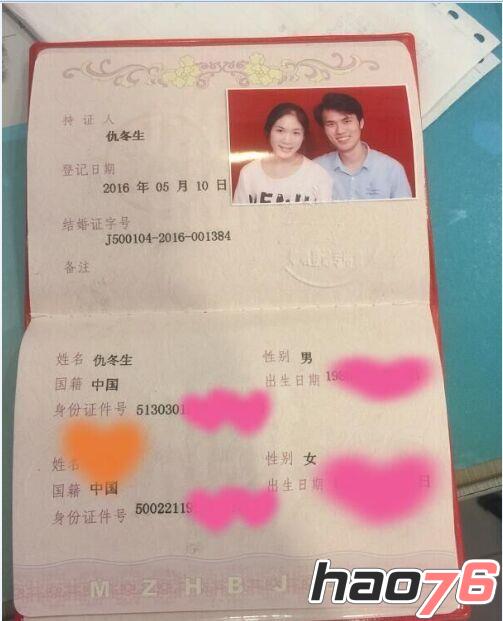 持证人
仇冬生
登记日期
2016 年 05 月 10 日
结婚证字号
J500104-2016-001384
备注
姓名 仇冬生 性别 男
国籍 中国 出生日期 198
身份证件号 5130301
姓名 性别 女
国籍 中国 出生日期 日
身份证件号 50022119
M Z H B J
hao76